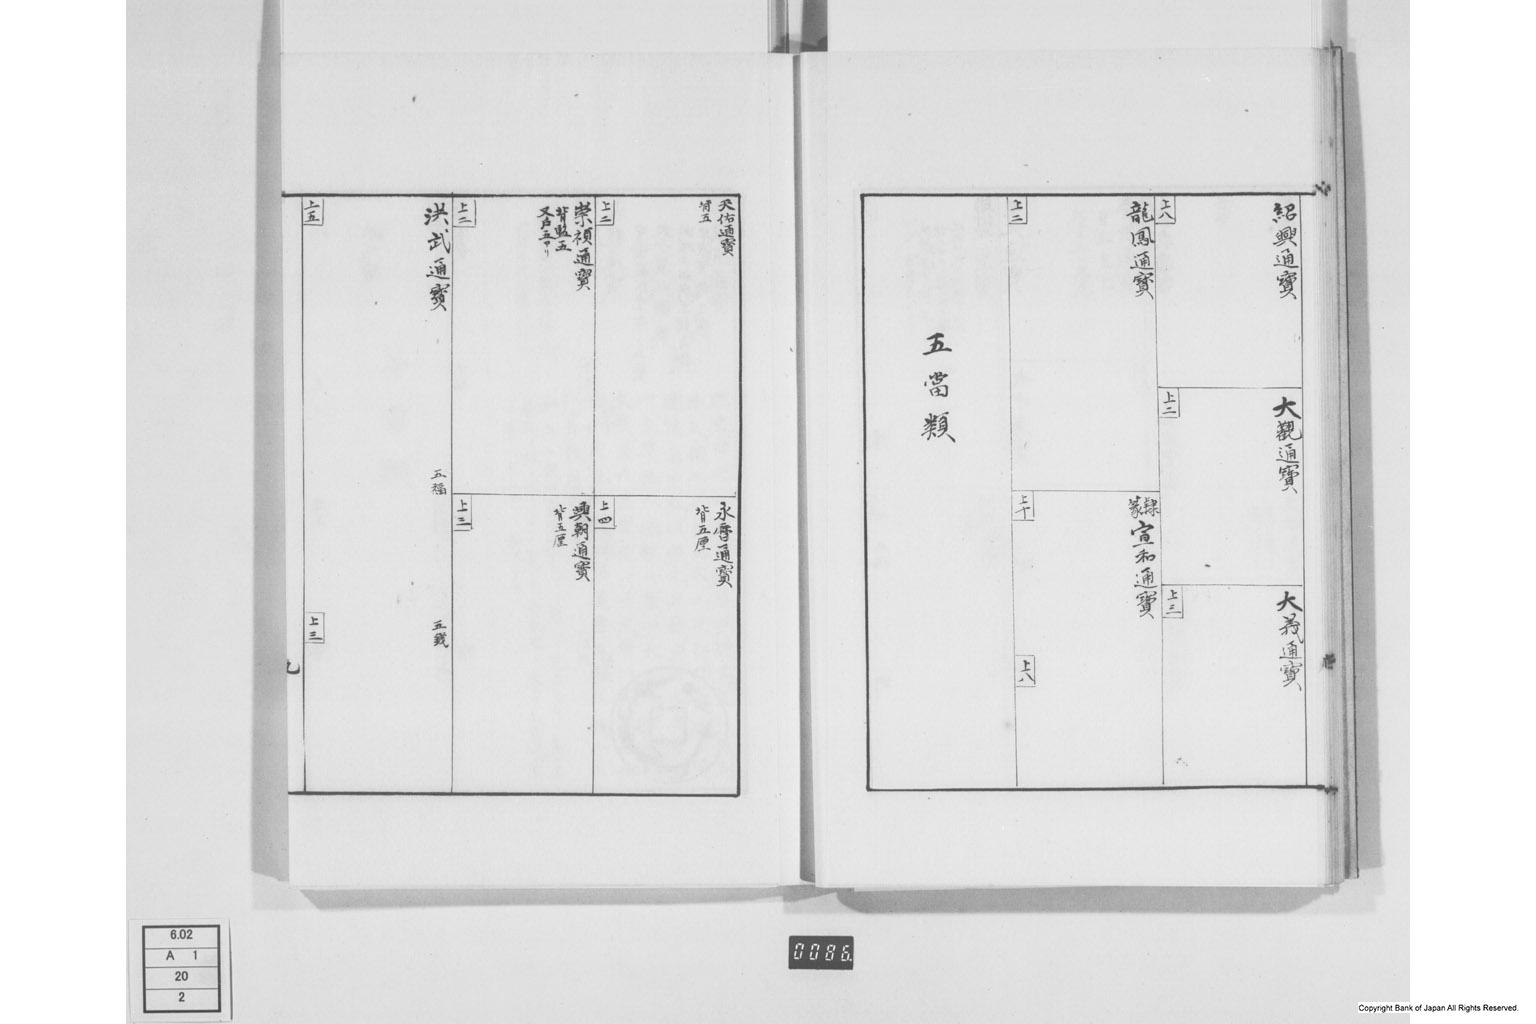 紹興通寳
上八
大觀通寳
上二
大義通寳
上三
龍鳳通寳
上二
隷
篆
宣和通寳
上十
上八
五當類
天佑通寳
背五
上二
永曆通寳
背五厘
上四
崇禎通寳
背監五
上二
興朝通寳
背五厘
上三
洪武通寳
五福
五錢
上五
上三
九
6.02
A 1
20
2
0086
Copyright Bank of Japan All Rights Reserved.